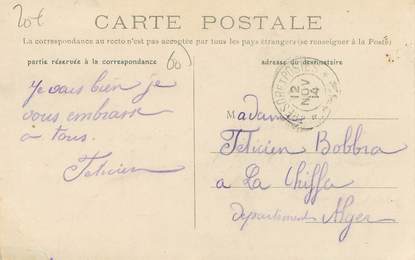 20€
CARTE POSTALE
La correspondance au recto n'est pas acceptée par tous les pays étrangers (se renseigner à la Poste)
partie réservée à la correspondance
adresse du destinataire
60
Je vais bien je
vous embrasse
à tous.
Felicien
ET POSTES
12
NOV
14
Madame
Felicien Bobbra
a La Chiffa
departement Alger